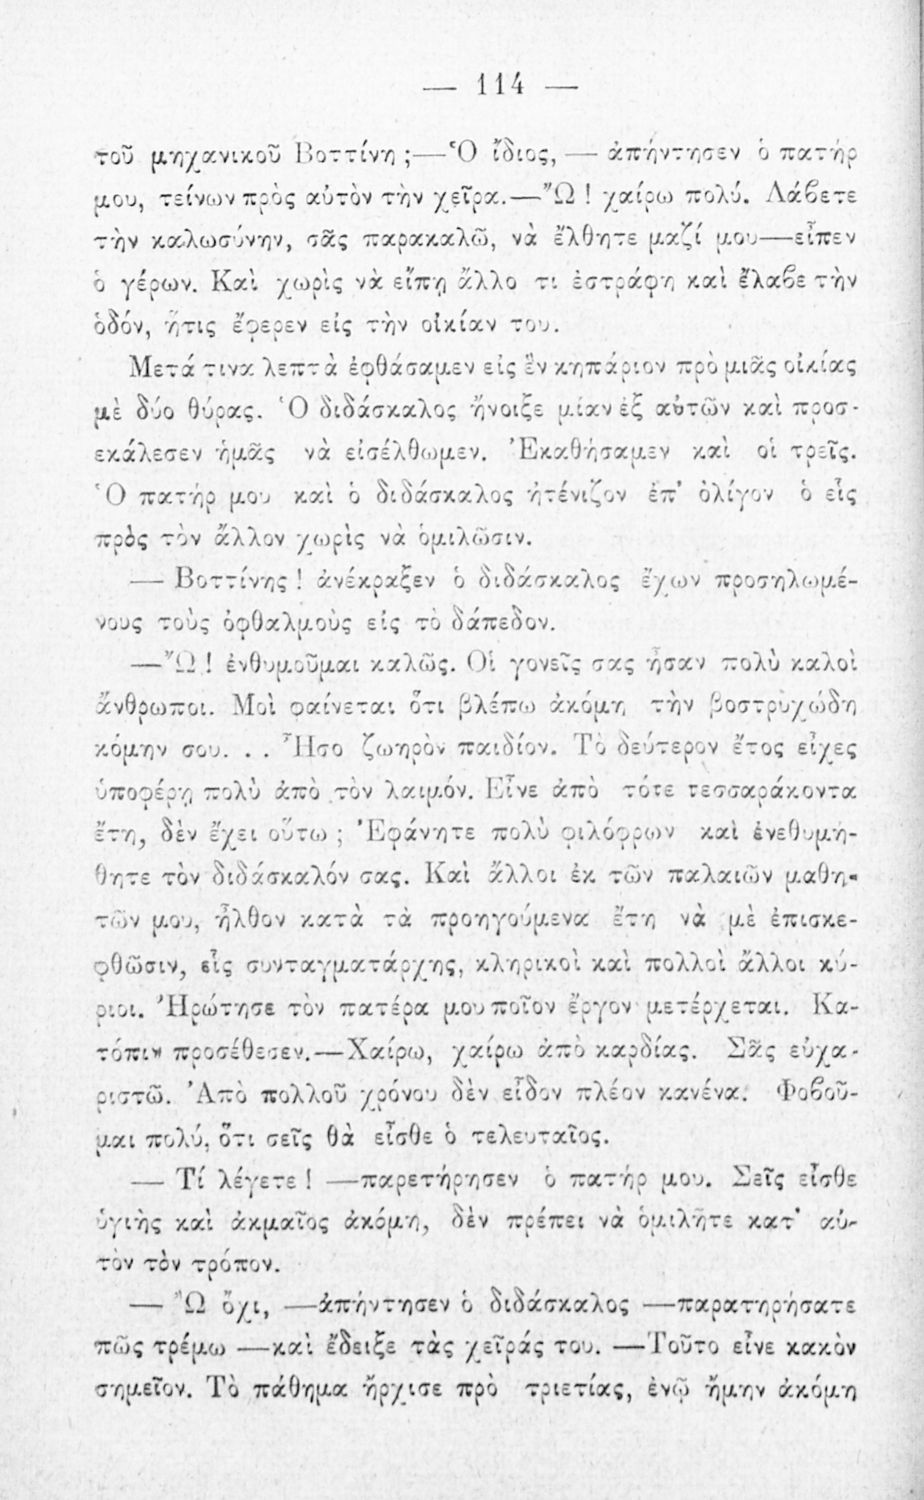 — 114 —
τοῦ μηχανικοῦ Βοττίνη ;—Ὁ ἴδιος, — ἀπήντησεν ὁ πατήρ
μου, τείνων πρὸς αὐτὸν τὴν χεῖρα.—Ὤ ! χαίρω πολύ. Λάβετε
τὴν καλωσύνην, σᾶς παρακαλῶ, νὰ ἔλθητε μαζί μου—εἶπεν
ὁ γέρων. Καὶ χωρὶς νὰ εἴπῃ ἄλλο τι ἐστράφη καὶ ἔλαβε τὴν
ὁδόν, ἥτις ἔφερεν εἰς τὴν οἰκίαν του.
Μετά τινα λεπτὰ ἐφθάσαμεν εἰς ἓν κηπάριον πρὸ μιᾶς οἰκίας
μὲ δύο θύρας. Ὁ διδάσκαλος ἤνοιξε μίαν ἐξ αὐτῶν καὶ προσ-
εκάλεσεν ἡμᾶς νὰ εἰσέλθωμεν. Ἐκαθήσαμεν καὶ οἱ τρεῖς.
Ὁ πατήρ μου καὶ ὁ διδάσκαλος ἠτένιζον ἐπ' ὀλίγον ὁ εἷς
πρὸς τὸν ἄλλον χωρὶς νὰ ὁμιλῶσιν.
— Βοττίνης ! ἀνέκραξεν ὁ διδάσκαλος ἔχων προσηλωμέ-
νους τοὺς ὀφθαλμοὺς εἰς τὸ δάπεδον.
—Ὤ ! ἐνθυμοῦμαι καλῶς. Οἱ γονεῖς σας ἦσαν πολὺ καλοὶ
ἄνθρωποι. Μοὶ φαίνεται ὅτι βλέπω ἀκόμη τὴν βοστρυχώδη
κόμην σου. . . Ἦσο ζωηρὸν παιδίον. Τὸ δεύτερον ἔτος εἶχες
ὑποφέρῃ πολὺ ἀπὸ τὸν λαιμόν. Εἶνε ἀπὸ τότε τεσσαράκοντα
ἔτη, δὲν ἔχει οὕτω ; Ἐφάνητε πολὺ φιλόφρων καὶ ἐνεθυμή-
θητε τὸν διδάσκαλόν σας. Καὶ ἄλλοι ἐκ τῶν παλαιῶν μαθη-
τῶν μου, ἦλθον κατὰ τὰ προηγούμενα ἔτη νὰ μὲ ἐπισκε-
φθῶσιν, εἷς συνταγματάρχης, κληρικοὶ καὶ πολλοὶ ἄλλοι κύ-
ριοι. Ἠρώτησε τὸν πατέρα μου ποῖον ἔργον μετέρχεται. Κα-
τόπιν προσέθεσεν.—Χαίρω, χαίρω ἀπὸ καρδίας. Σᾶς εὐχα-
ριστῶ. Ἀπὸ πολλοῦ χρόνου δὲν εἶδον πλέον κανένα. Φοβοῦ-
μαι πολύ, ὅτι σεῖς θὰ εἶσθε ὁ τελευταῖος.
— Τί λέγετε ! —παρετήρησεν ὁ πατήρ μου. Σεῖς εἶσθε
ὑγιὴς καὶ ἀκμαῖος ἀκόμη, δὲν πρέπει νὰ ὁμιλῆτε κατ' αὐ-
τὸν τὸν τρόπον.
— Ὢ ὄχι, —ἀπήντησεν ὁ διδάσκαλος —παρατηρήσατε
πῶς τρέμω —καὶ ἔδειξε τὰς χεῖράς του. —Τοῦτο εἶνε κακὸν
σημεῖον. Τὸ πάθημα ἤρχισε πρὸ τριετίας, ἐνῷ ἤμην ἀκόμη